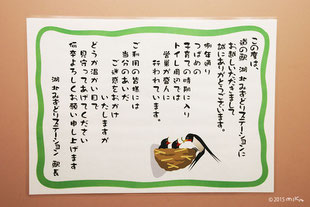 この度は、
道の駅 湖北みずどりステーションに
お越しいただきまして
誠にありがとうございます。
例年通り
つばめの
子育ての時期に入り
トイレ周辺では
営巣が盛んに
行われています。
ご利用の皆様には
当分のあいだ
ご迷惑をおかけ
いたしますが
どうか温かい目で
見守ってあげてください
何卒よろしくお願い申し上げます
湖北みずどりステーション 駅長
©2015 mika